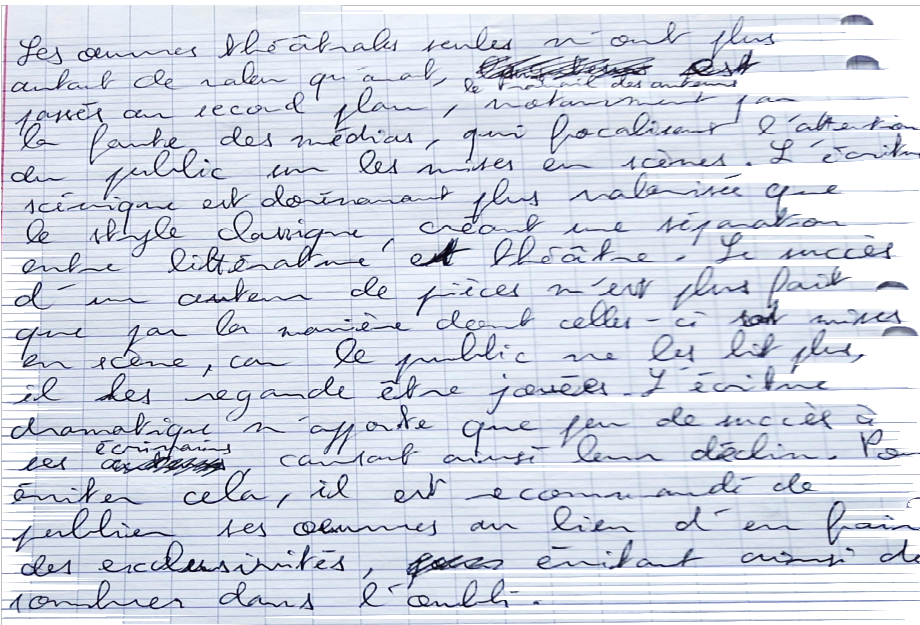 Les œuvres théâtrales seules n'ont plus
autant de valeur qu'avant, le travail des auteurs est
passés au second plan, notamment par
la faute des médias, qui focalisent l'attention
du public sur les mises en scènes. L'écriture
scénique est dorénavant plus valorisée que
le style classique, créant une séparation
entre littérature et théâtre. Le succès
d'un auteur de pièces n'est plus fait
que par la manière dont celles-ci sont mises
en scène, car le public ne les lit plus,
il les regarde être jouées. L'écriture
dramatique n'apporte que peu de succès à
ses écrivains, causant ainsi leur déclin. Pour
éviter cela, il est recommandé de
publier ses œuvres au lieu d'en faire
des exclusivités, évitant ainsi de
sombrer dans l'oubli.